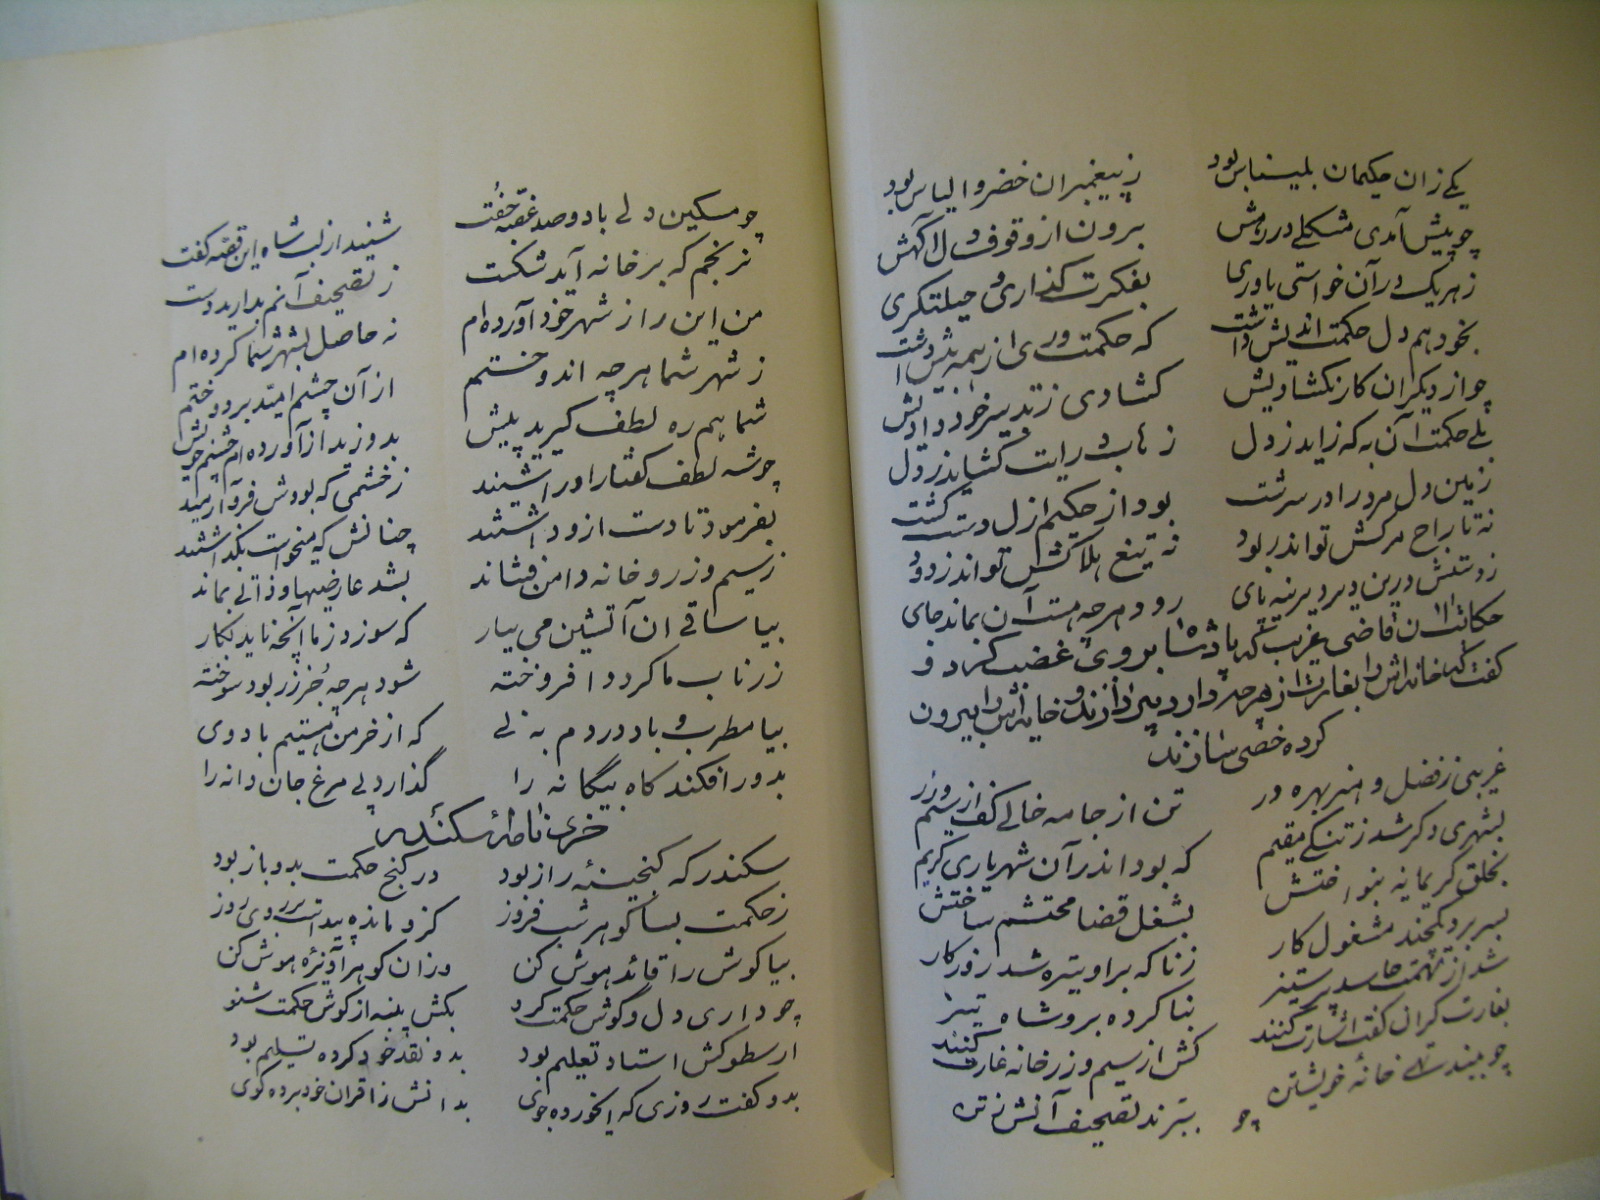 یکے زان حکیمان بلیناس بود ز پیغمبران خضر و الیاس بود
چو پیش آمدی مشکلے در رهش برون از وقوف دل آگهش
ز هر یک در آن خواستی یاوری بفکرت گذاری و حیلتگری
بخود هم دل حکمت اندیش داشت که حکمت وری از همه بیش داشت
چو از دیگران کار نگشادیش گشادی ز تدبیر خود دادیش
بلے حکمت آن به که زاید ز دل
زمین دل مرد را در سرشت بود از حکیم ازل دست کشت
نه تاراج مرگش تواند ربود نه تیغ هلاکش تواند درود
رود هر چه هست آن بماند بجای
حکایت آن قاضی غریب که پادشاه بر وی غضب کرد و
گفت که خانه‌اش را بغارت از هر چه دارد بپردازند و خایه‌اش را بیرون
کرده خصی سازند
غریبی ز فضل و هنر بهره ور تن از جامه خالے کف از سیم و زر
بشهری دگر شد ز تنگے مقیم که بود اندر آن شهریاری کریم
بخلق کریمانه بنواختش بشغل قضا محتشم ساختش
بسر برد یکچند مشغول کار زنا گه بر او تیره شد روزگار
شد از تهمت حاسد پر ستیز بنا کرده برو شاه تیز
بغارت گران گفت اشارت کنند کش از سیم و زر خانه غارت کنند
چو بیند تهے خانهٔ خویشتن ببرند تصحیف آنش ز تن
چو
چو مسکین دلے با دو صد غصه جفت شنید از لب شاه این قصه گفت
نرنجم که بر خانه آید شکست ز تصحیف آنم بدارید دست
من این را ز شهر خود آورده‌ام نه حاصل بشهر شما کرده‌ام
ز شهر شما هر چه اندوختم از آن چشم امید بر دوختم
شما هم ره لطف گیرید پیش
چو شه لطف گفتار او را شنید ز خشمی که بودش فرو آرمید
بفرمود تا دست ازو داشتند چنانش که میخواست بگذاشتند
ز سیم و زر و خانه دامن فشاند بشد عارضیها و ذاتے بماند
بیا ساقے آن آتشین می بیار که سوزد ز ما آنچه ناید بکار
زر ناب ما گردد افروخته شود هر چه جز زر بود سوخته
بیا مطرب و باد در دم به نے که از خرمن هستیم باد وی
بدور افکند کاه بیگانه را گذارد پے مرغ جان دانه را
خردنامهٔ سکندر
سکندر که گنجینهٔ راز بود در گنج حکمت بدو باز بود
ز حکمت بسا گوهر شب فروز کزو مانده پیداست بر روی روز
بیا گوش را قائد هوش کن وزان گوهر آویزهٔ هوش کن
چو داری دل و گوش حکمت گرو بکش پنبه از گوش حکمت شنو
ارسطو کش استاد تعلیم بود بدو نقد خود کرده تسلیم بود
بدو گفت روزی که ای خورده جوی بدانش ز اقران خود برده گوی